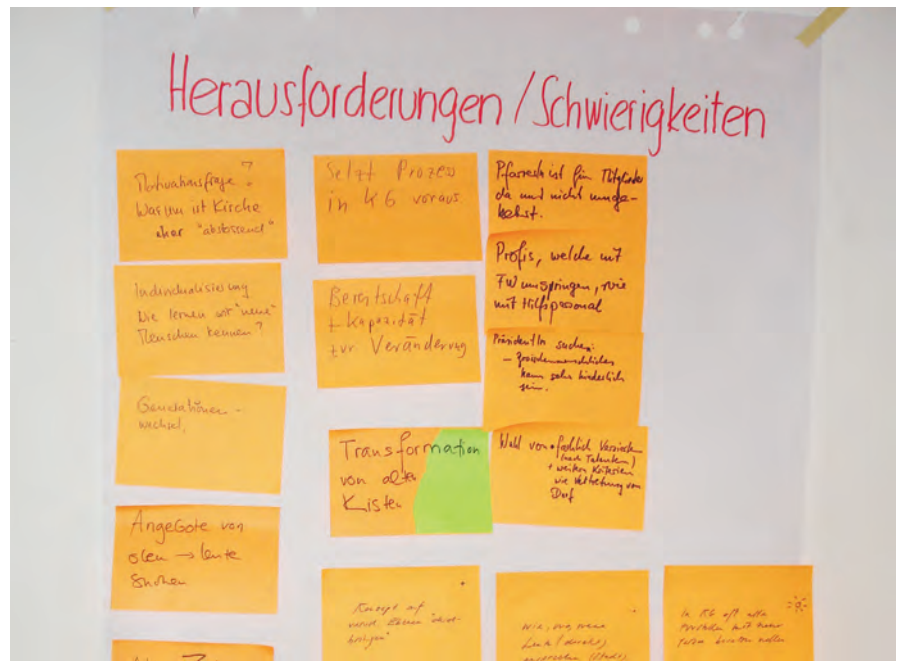 Herausforderungen / Schwierigkeiten
Motivationsfrage?
Warum ist Kirche
eher "abstossend"
Individualisierung
Wie lernen wir "neue"
Menschen kennen?
Generationen-
wechsel,
Angebote von
oben → Leute
suchen
Setzt Prozess
in KG voraus.
Bereitschaft
+ Kapazität
zur Veränderung
Transformation
von alten
Kisten
Pfarrech ist für Mitglieder
da und nicht umge-
kehrt.
Profis, welche mit
FW umspringen, wie
mit Hilfspersonal
PräsidentIn suchen:
– Zwischenmenschliches
kann sehr hinderlich
sein.
Wahl von fachlich Versierten
(nach Talenten)
+ weitere Kriterien
wie Vertretung von
Dorf
Konzept auf
Ebenen
wie, wo, wenn
Leute
In KG oft alle
mit neuen